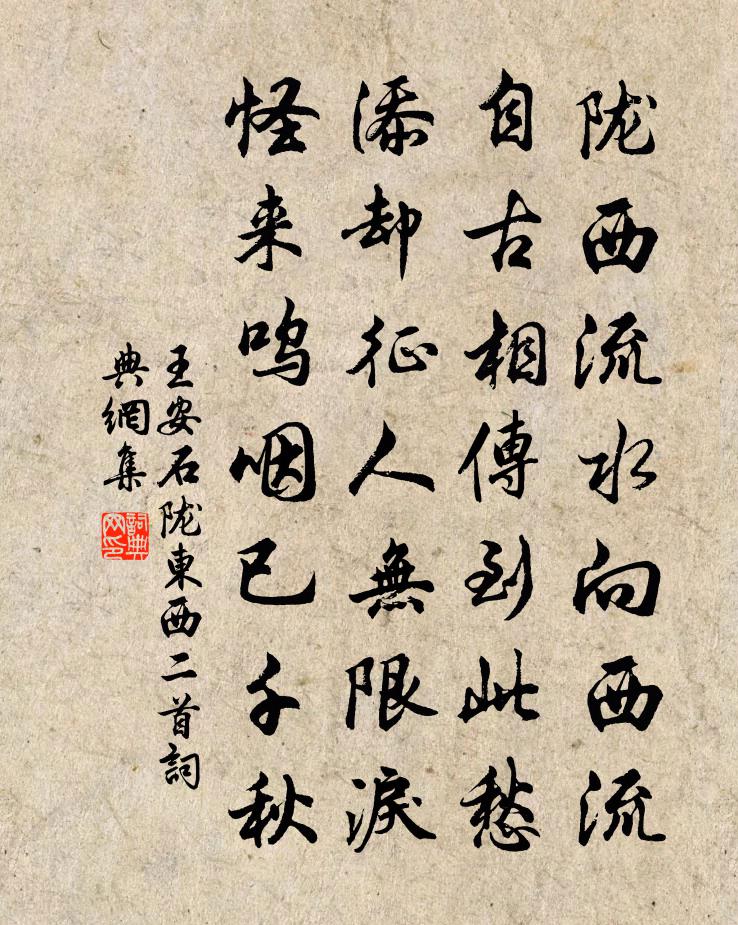 陇西流水向西流
自古相傳到此愁
添却征人無限淚
怪来鸣咽已千秋
王安石陇東西二首詞
典網集
詞典
网印